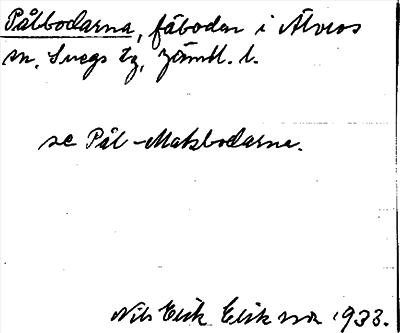 Pålbodarna, fäbodar i Älvros
sn, Svegs tg, Jämtl. l.
se Pål-Matsbodarna.
Nils Erik Eriksson 1933.